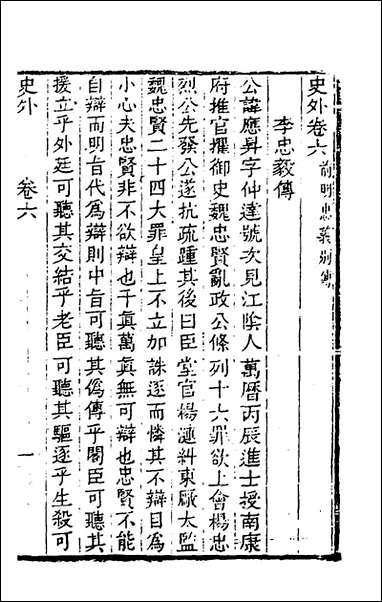 史外卷六 前明忠義別傳
李忠毅傳
公諱應昇字仲達號次見江陰人萬曆丙辰進士授南康
府推官擢御史魏忠賢亂政公條列十六罪欲上會楊忠
烈公先發公遂抗疏踵其後曰臣堂官楊漣糾東厰太監
魏忠賢二十四大罪皇上不立加誅逐而憐其不辯目爲
小心夫忠賢非不欲辯也千眞萬眞無可辯也忠賢不能
自辯而明旨代爲辯則中旨可聽其僞傳乎閣臣可聽其
援立乎外廷可聽其交結乎老臣可聽其驅逐乎生殺可
史外 卷六 一